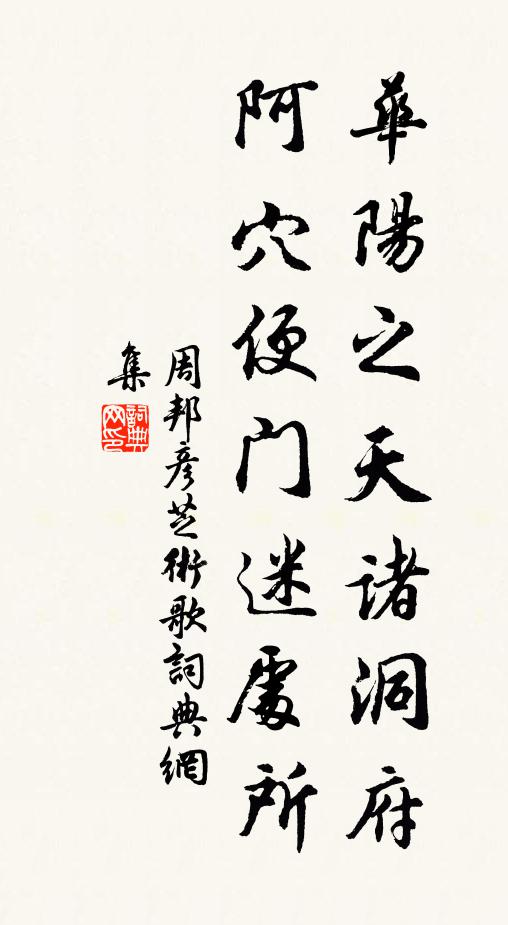 華陽之天諸洞府
阿穴便门迷處所
周邦彥芝術歌詞典網
集
詞典网印